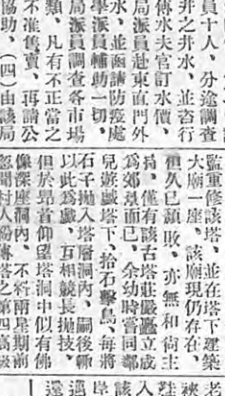 員十人、分途調查
井之井水、並咨行
傳水夫官訂水價、
局派員赴東直門外
水、並函請防疫處
學派員輔助一切、
局派員調查各市場
類、凡有不正當之
不准售賣、再請公
協助（四）由該局
監重修該塔、並在塔下建築
大廟一座、該廟現仍存在、
但久已頹敗、亦無和尚主
持、僅有該古塔莊嚴矗立成
為郊景而已、余幼時嘗同鄰
兒遊戲塔下、拾石擊鳥、每將
石子拋入塔層洞內、嗣後卿
以此為戲、互相競長拋技、
但於昂首仰望塔洞中似有佛
像深座洞內、不料兩星期前
忽聞村人紛傳塔之第四高級
老
入
該
還